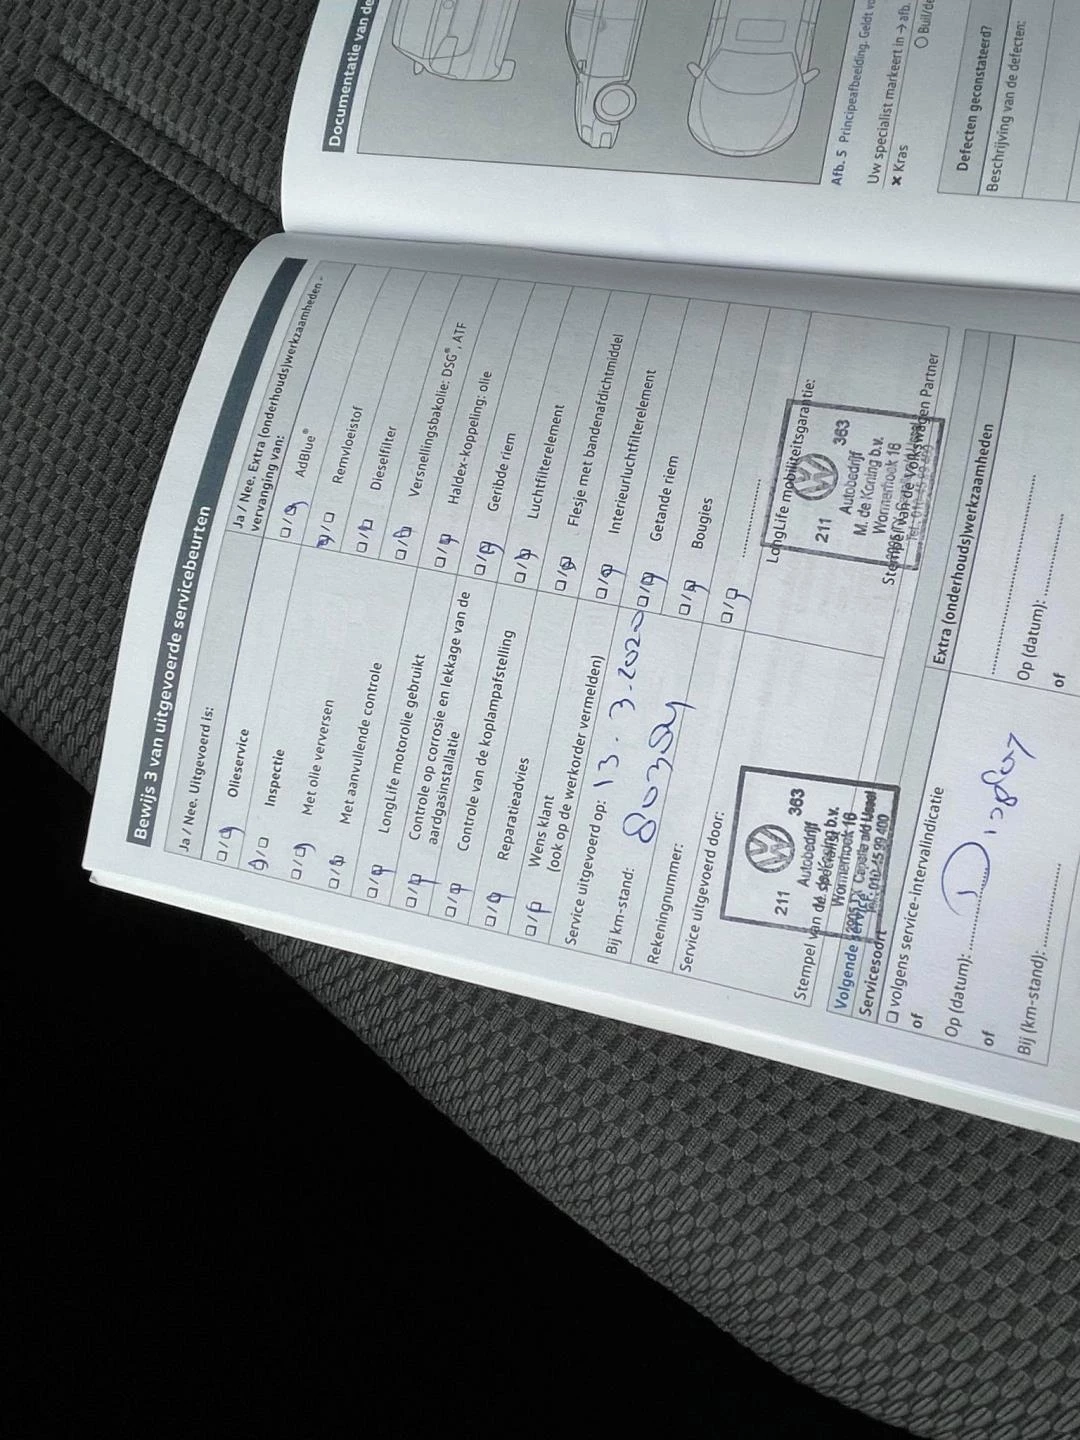 Bewijs 3 van uitgevoerde servicebeurten
Ja / Nee. Uitgevoerd is:
Olieservice
Inspectie
Met olie verversen
Met aanvullende controle
LongLife motorolie gebruikt
Controle op corrosie en lekkage van de
aardgasinstallatie
Controle van de koplampafstelling
Reparatieadvies
Wens klant
(ook op de werkorder vermelden)
Service uitgevoerd op: 13.3.2020
Bij km-stand:
Rekeningnummer:
Service uitgevoerd door:
211 363
Autobedrijf
Wormerhoek 16
Stempel van de
Volgende service
Servicesoort
volgens service-intervalindicatie
of
Op (datum): Display
of
Bij (km-stand):
Ja / Nee. Extra (onderhouds)werkzaamheden -
vervanging van:
AdBlue®
Remvloeistof
Dieselfilter
Versnellingsbakolie: DSG®, ATF
Haldex-koppeling: olie
Geribde riem
Luchtfilterelement
Flesje met bandenafdichtmiddel
Interieurluchtfilterelement
Getande riem
Bougies
LongLife mobiliteitsgarantie:
211 363
Autobedrijf
M. de Koning b.v.
Wormerhoek 16
Stempel van de Volkswagen Partner
Extra (onderhouds)werkzaamheden
Op (datum):
of
Documentatie van de
Afb. 5 Principeafbeelding. Geldt
Uw specialist markeert in → afb.
× Kras
Defecten geconstateerd?
Beschrijving van de defecten: